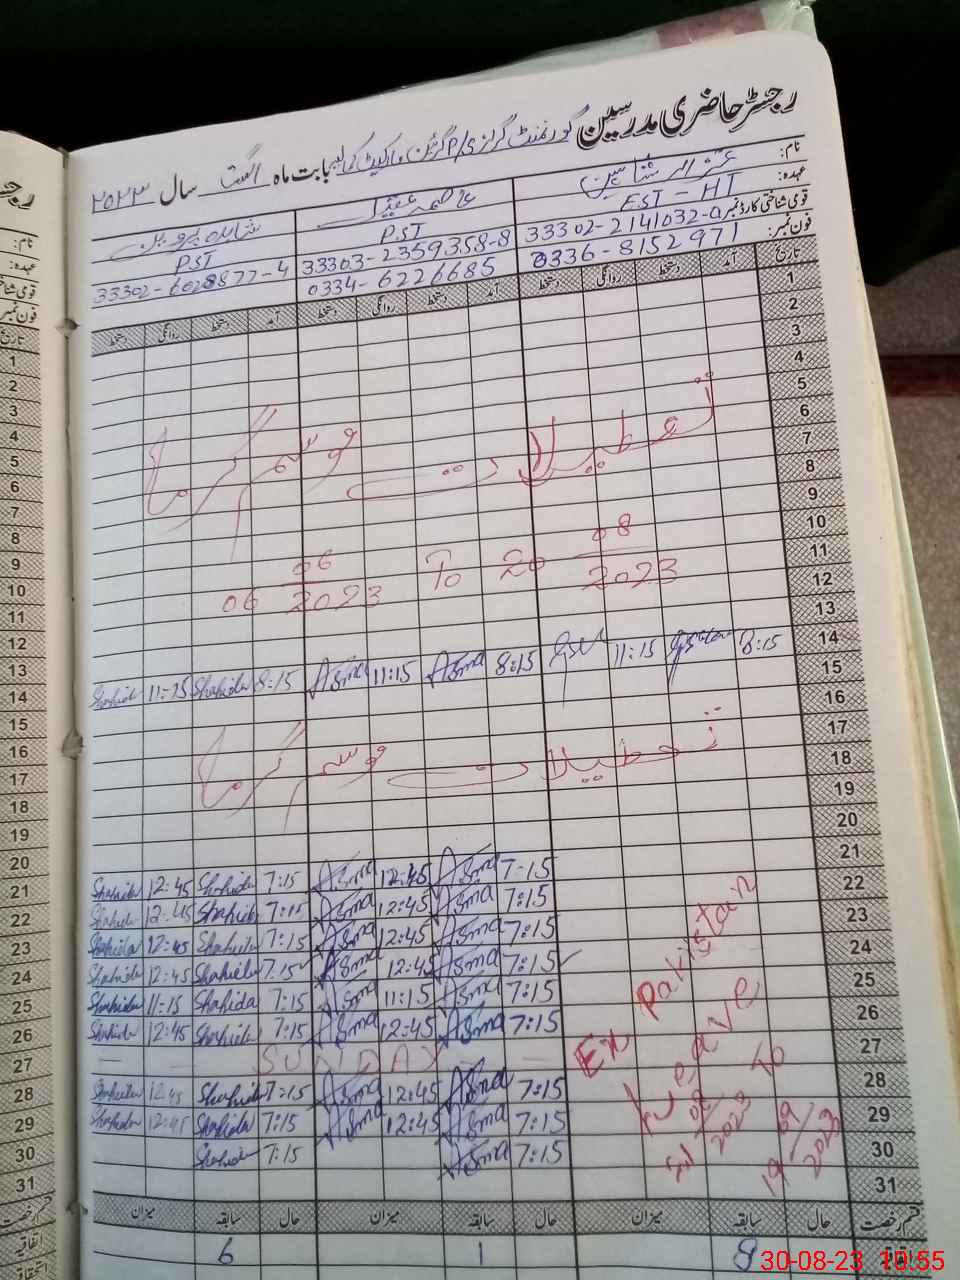 رجسٹر حاضری مدرسین گورنمنٹ گرلز بابت ماہ اگست سال ۲۰۲۳
نام:
عاصمہ عقیل
شاہدہ پروین
عہدہ:
EST - HT
PST
PST
قومی شناختی کارڈ نمبر
33302-2141032-0
33303-2359358-8
فون نمبر:
0336-8152971
0334-6226685
تاریخ آمد دستخط روانگی دستخط آمد دستخط روانگی دستخط آمد دستخط روانگی دستخط
1
2
3
4
5
6
7
8
9
10
11
12
13
14
15
16
17
18
19
20
21
22
23
24
25
26
27
28
29
30
31
تعطیلات موسم گرما
06 06/2023 To 20 08/2023
8:15 11:15 8:15 Asma 11:15 Asma 8:15 Shahida 11:15 Shahida
تعطیلات موسم گرما
7:15 Asma 12:45 Asma 7:15 Shahida 12:45 Shahida
7:15 Asma 12:45 Asma 7:15 Shahida 12:45 Shahida
7:15 Asma 12:45 Asma 7:15 Shahida 12:45 Shahida
7:15 Asma 12:45 Asma 7:15 Shahida 12:45 Shahida
7:15 Asma 11:15 Asma 7:15 Shahida 11:15 Shahida
7:15 Asma 12:45 Asma 7:15 Shahida 12:45 Shahida
— SUNDAY —
7:15 Asma 12:45 Asma 7:15 Shahida 12:45 Shahida
7:15 Asma 12:45 Asma 7:15 Shahida 12:45 Shahida
7:15 Asma 7:15 Shahida
Ex Pakistan
Leave
08/2023 to
19 09/2023
قسم رخصت حال سابقہ میزان حال سابقہ میزان حال سابقہ میزان
اتفاقیہ 8 1 6
رجسٹر
نام:
عہدہ:
فون نمبر:
تاریخ
1
2
3
4
5
6
7
8
9
10
11
12
13
14
15
16
17
18
19
20
21
22
23
24
25
26
27
28
29
30
31
قسم رخصت
اتفاقیہ
30-08-23 10:55